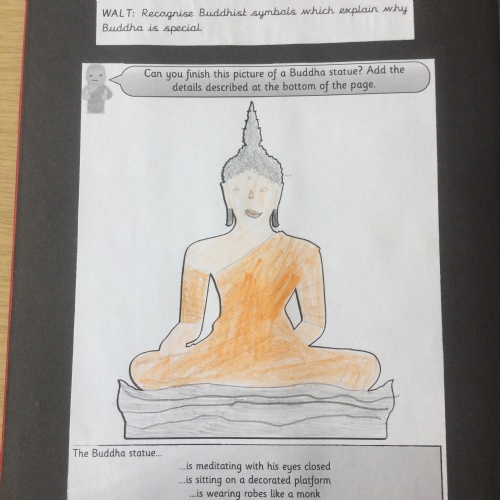 WALT: Recognise Buddhist symbols which explain why
Buddha is special.
Can you finish this picture of a Buddha statue? Add the
details described at the bottom of the page.
The Buddha statue...
...is meditating with his eyes closed
...is sitting on a decorated platform
...is wearing robes like a monk